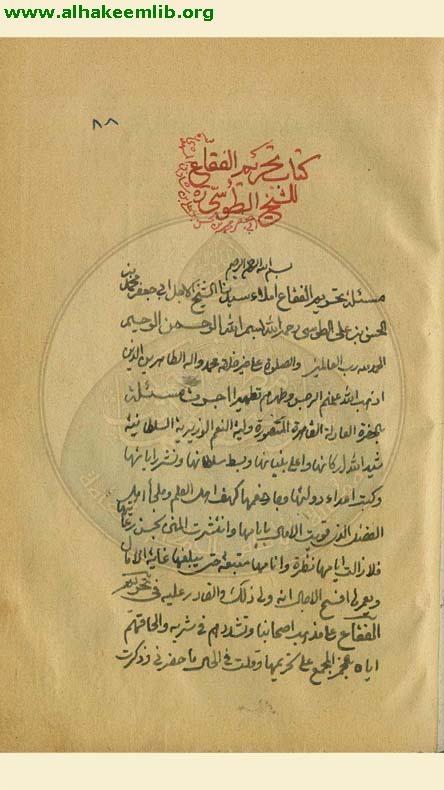 www.alhakeemlib.org
٨٨
كتاب تحريم الفقاع
للشيخ الطوسي ره
بسم الله الرحمن الرحيم
مسئلة تحريم الفقاع املاء سيدنا الشيخ الاجل ابي جعفر محمد بن
الحسن بن علي الطوسي رحمه الله بسم الله الرحمن الرحيم
الحمد لله رب العالمين والصلوة على خير خلقه محمد واله الطاهرين الذين
اذهب الله عنهم الرجس وطهرهم تطهيرا مسئلة
الحضرة العادلة القاهرة المنصورة ولية النعم الوزيرية السلطانية
شيد الله اركانها واعلى بنيانها وبسط سلطانها ونشر اياتها
وكبت اعداء دولتها كهف اهل العلم اهل
الفضل الذين قويت الامال بايامها وانتشرت المنى بحسن
فلا زالت ايامها نظرة متبعة حتى يبلغها غاية الامال
افسح الاجال انه ولي ذلك والقادر عليه في تحريم
الفقاع على مذهب اصحابنا وتشددهم في شربه والحاقهم
اياه بالخمر المجمع على تحريمها وقلت في الحال ما حضرني وذكرت